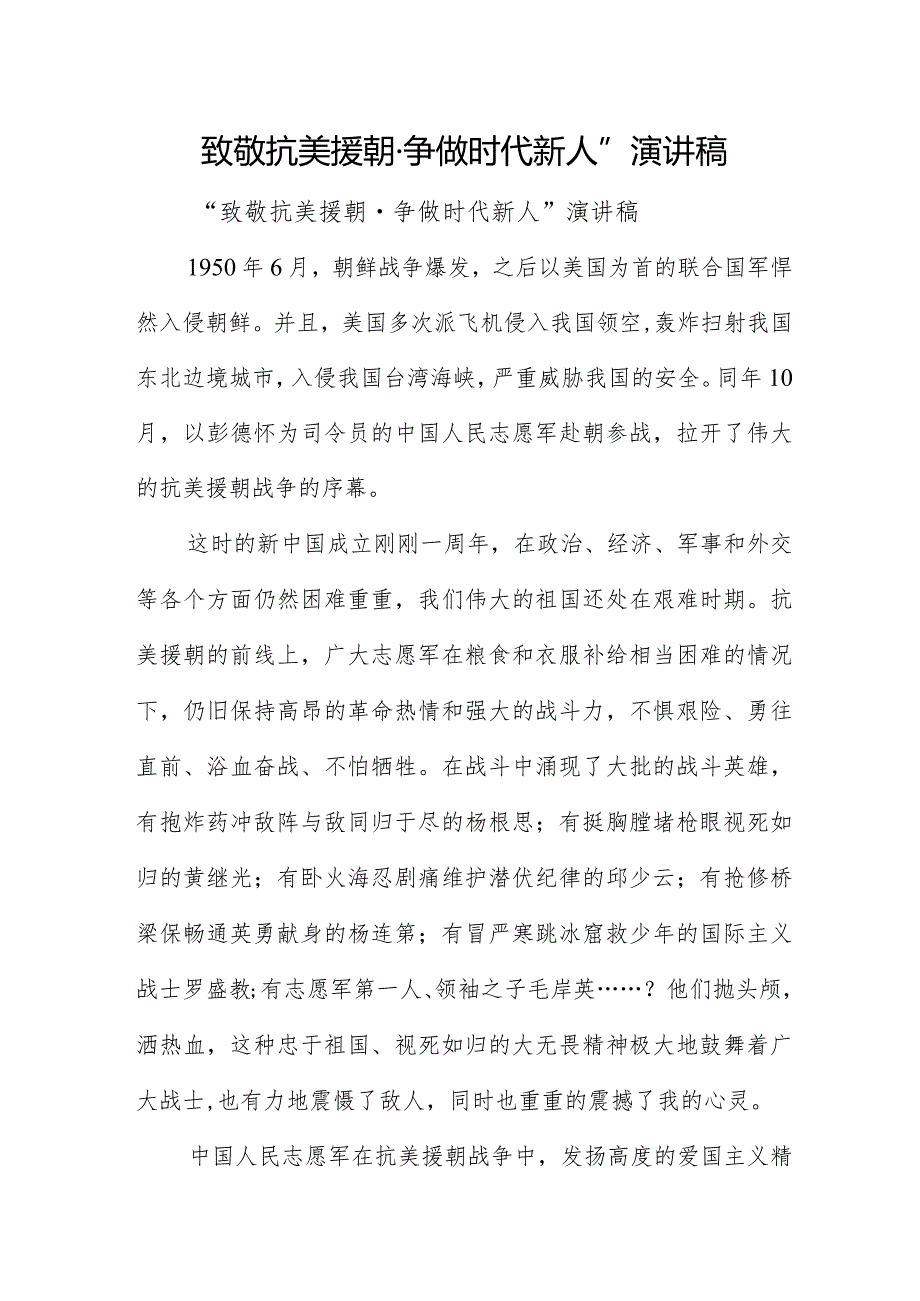 致敬抗美援朝·争做时代新人”演讲稿
“致敬抗美援朝·争做时代新人”演讲稿
1950 年 6 月，朝鲜战争爆发，之后以美国为首的联合国军悍
然入侵朝鲜。并且，美国多次派飞机侵入我国领空,轰炸扫射我国
东北边境城市，入侵我国台湾海峡，严重威胁我国的安全。同年 10
月，以彭德怀为司令员的中国人民志愿军赴朝参战，拉开了伟大
的抗美援朝战争的序幕。
这时的新中国成立刚刚一周年，在政治、经济、军事和外交
等各个方面仍然困难重重，我们伟大的祖国还处在艰难时期。抗
美援朝的前线上，广大志愿军在粮食和衣服补给相当困难的情况
下，仍旧保持高昂的革命热情和强大的战斗力，不惧艰险、勇往
直前、浴血奋战、不怕牺牲。在战斗中涌现了大批的战斗英雄，
有抱炸药冲敌阵与敌同归于尽的杨根思；有挺胸膛堵枪眼视死如
归的黄继光；有卧火海忍剧痛维护潜伏纪律的邱少云；有抢修桥
梁保畅通英勇献身的杨连第；有冒严寒跳冰窟救少年的国际主义
战士罗盛教;有志愿军第一人、领袖之子毛岸英……？他们抛头颅，
洒热血，这种忠于祖国、视死如归的大无畏精神极大地鼓舞着广
大战士,也有力地震慑了敌人，同时也重重的震撼了我的心灵。
中国人民志愿军在抗美援朝战争中，发扬高度的爱国主义精